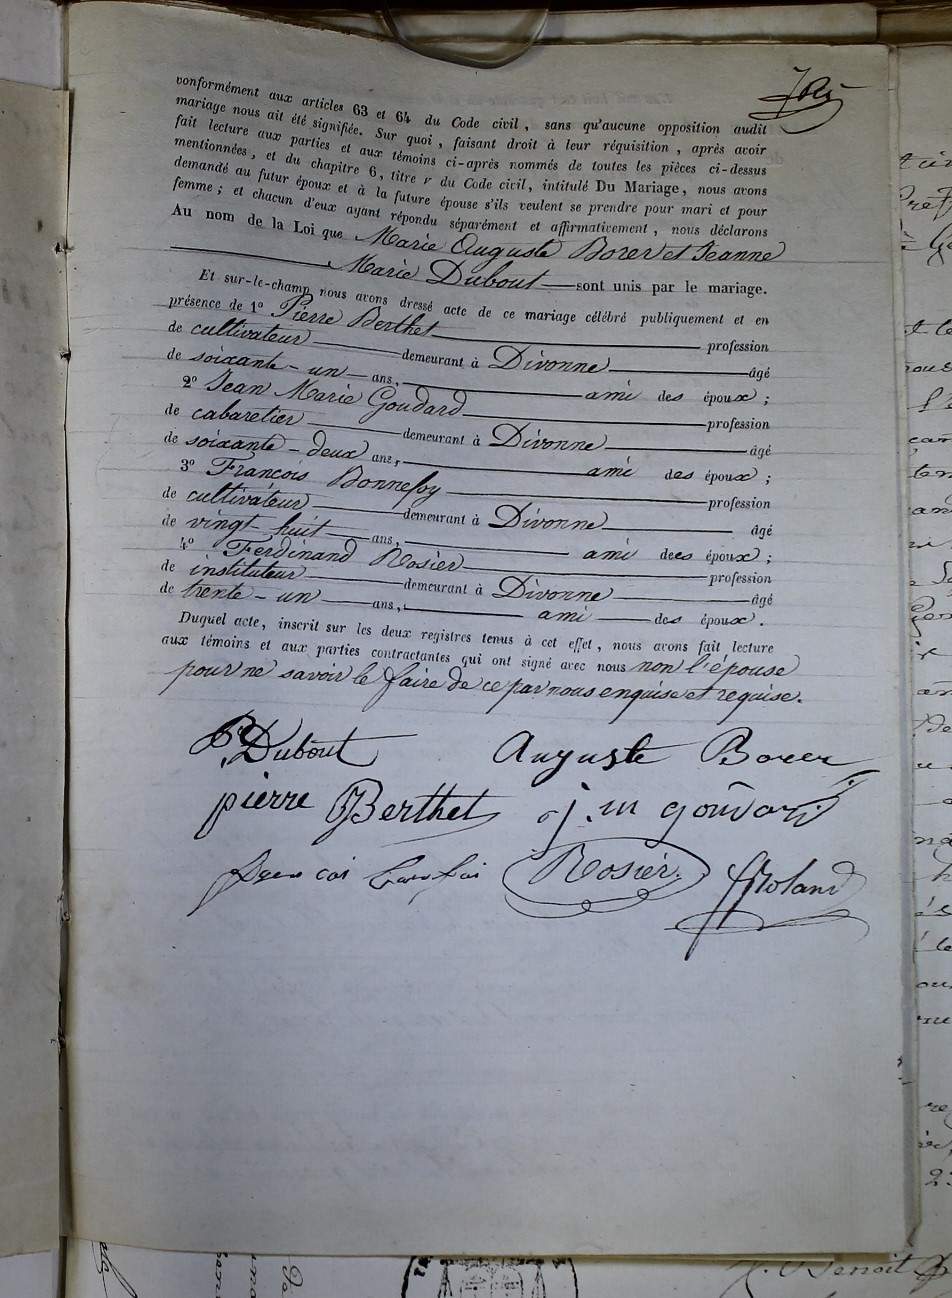 conformément aux articles 63 et 64 du Code civil, sans qu'aucune opposition audit
mariage nous ait été signifiée. Sur quoi, faisant droit à leur réquisition, après avoir
fait lecture aux parties et aux témoins ci-après nommés de toutes les pièces ci-dessus
mentionnées, et du chapitre 6, titre v du Code civil, intitulé Du Mariage, nous avons
demandé au futur époux et à la future épouse s'ils veulent se prendre pour mari et pour
femme; et chacun d'eux ayant répondu séparément et affirmativement, nous déclarons
Au nom de la Loi que Marie Auguste Borer et Jeanne
Marie Dubout sont unis par le mariage.
Et sur-le-champ nous avons dressé acte de ce mariage célébré publiquement et en
présence de 1° Pierre Berthet profession
de cultivateur demeurant à Divonne âgé
de soixante-un ans, ami des époux;
2° Jean Marie Goudard profession
de cabaretier demeurant à Divonne âgé
de soixante-deux ans, ami des époux;
3° François Bonnefoy profession
de cultivateur demeurant à Divonne âgé
de vingt huit ans, ami des époux;
4° Ferdinand Rosier profession
de instituteur demeurant à Divonne âgé
de trente-un ans, ami des époux.
Duquel acte, inscrit sur les deux registres tenus à cet effet, nous avons fait lecture
aux témoins et aux parties contractantes qui ont signé avec nous non l'épouse
pour ne savoir le faire de ce par nous enquise et requise.
Dubout Auguste Borer
pierre Berthet j. m goudard
Rosier. Roland